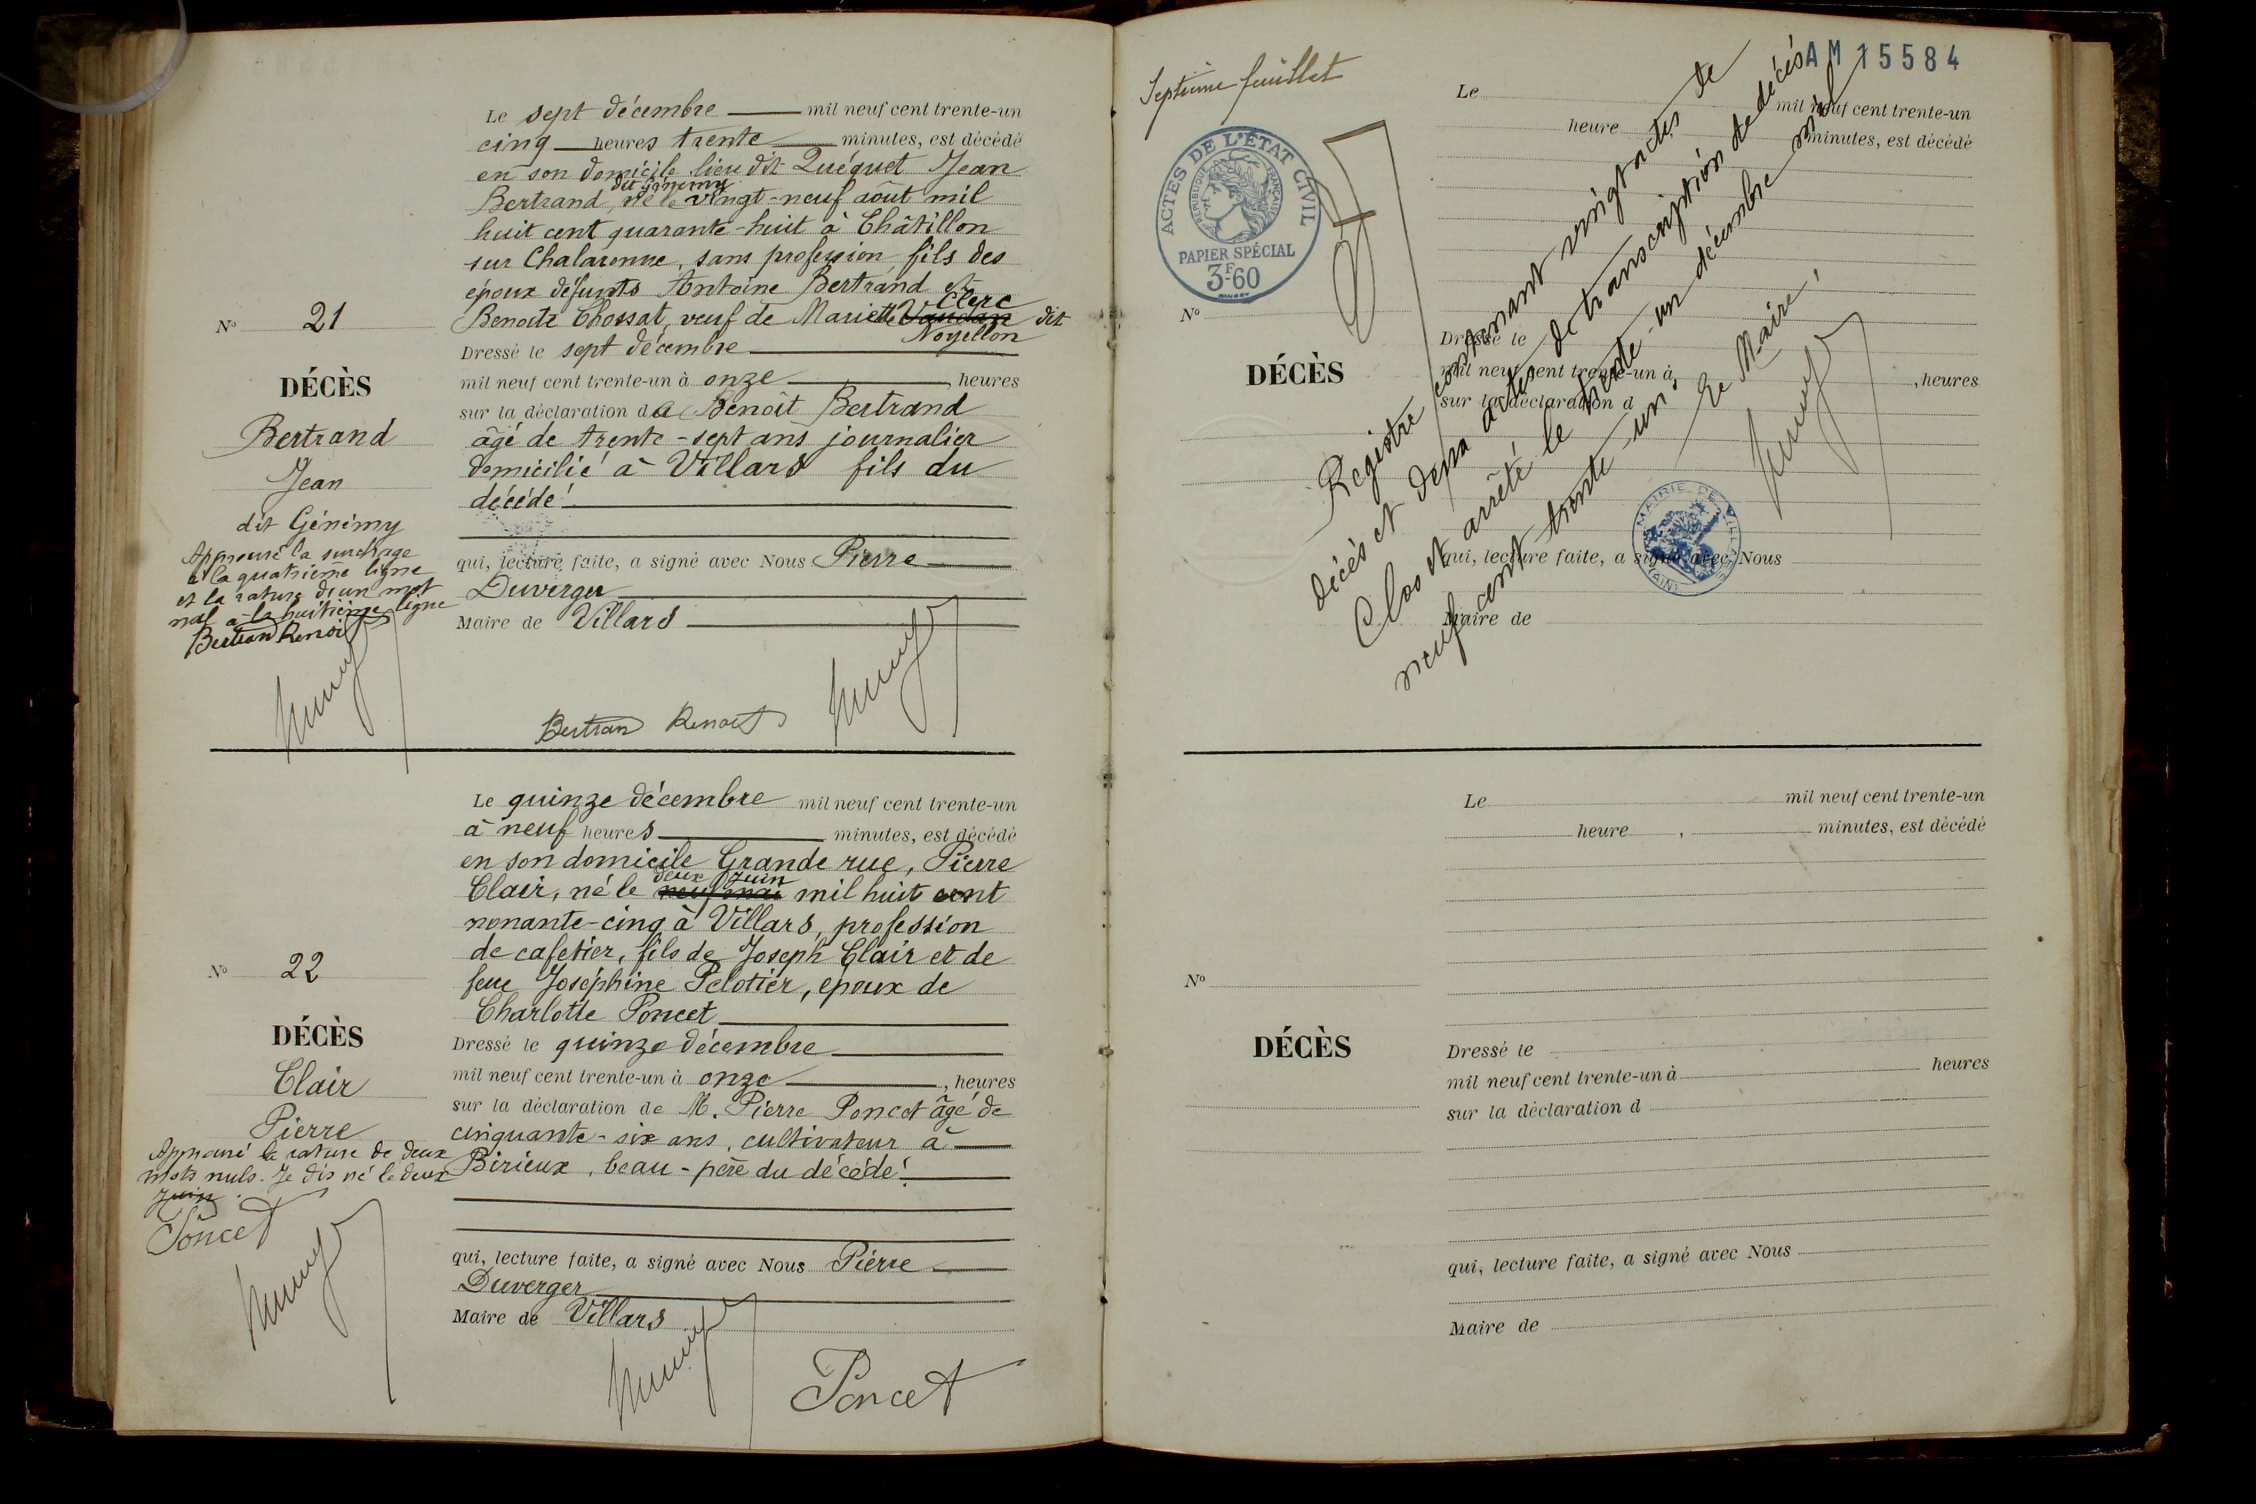 Le sept décembre mil neuf cent trente-un
cinq heures trente minutes, est décédé
en son domicile lieu dit Quéquet Jean
dit Génimy
Bertrand, né le vingt-neuf août mil
huit cent quarante-huit à Châtillon
sur Chalaronne, sans profession fils des
époux défunts Antoine Bertrand et
Clerc
Benoite Chossat, veuf de Mariette dit
Noyellon
Nº 21
DÉCÈS
Bertrand
Jean
dit Génimy
Approuvé la surchage
à la quatrième ligne
et la rature d'un mot
nul à la huitième ligne
Bertran Benoit
Dressé le sept décembre
mil neuf cent trente-un à onze, heures
sur la déclaration de Benoît Bertrand
âgé de trente-sept ans journalier
domicilié à Villars fils du
décédé
qui, lecture faite, a signé avec Nous Pierre
Duverger
Maire de Villars
Bertran Benoit
Le quinze décembre mil neuf cent trente-un
à neuf heures minutes, est décédé
en son domicile Grande rue, Pierre
deux juin
Clair, né le neuf mai mil huit cent
nonante-cinq à Villars, profession
de cafetier, fils de Joseph Clair et de
feue Joséphine Pelotier, epoux de
Charlotte Poncet
Nº 22
DÉCÈS
Clair
Pierre
Approuvé la rature de deux
mots nuls. Je dis né le deux
juin.
Poncet
Dressé le quinze décembre
mil neuf cent trente-un à onze, heures
sur la déclaration de M. Pierre Poncet âgé de
cinquante-six ans, cultivateur à
Birieux, beau-père du décédé.
qui, lecture faite, a signé avec Nous Pierre
Duverger
Maire de Villars
Poncet
AM 15584
Septième feuillet
ACTES DE L'ÉTAT CIVIL
RÉPUBLIQUE FRANÇAISE
PAPIER SPÉCIAL
3F60
Le mil neuf cent trente-un
heure minutes, est décédé
Nº
DÉCÈS
Dressé le
mil neuf cent trente-un à, heures
sur la déclaration d
qui, lecture faite, a signé avec Nous
Maire de
Registre contenant vingt actes de
décès et deux actes de transcription de décès
Clos et arrêté le trente-un décembre mil
neuf cent trente-un.
Le Maire,
MAIRIE DE VILLARS
(AIN)
Le mil neuf cent trente-un
heure, minutes, est décédé
Nº
DÉCÈS
Dressé le
mil neuf cent trente-un à heures
sur la déclaration d
qui, lecture faite, a signé avec Nous
Maire de